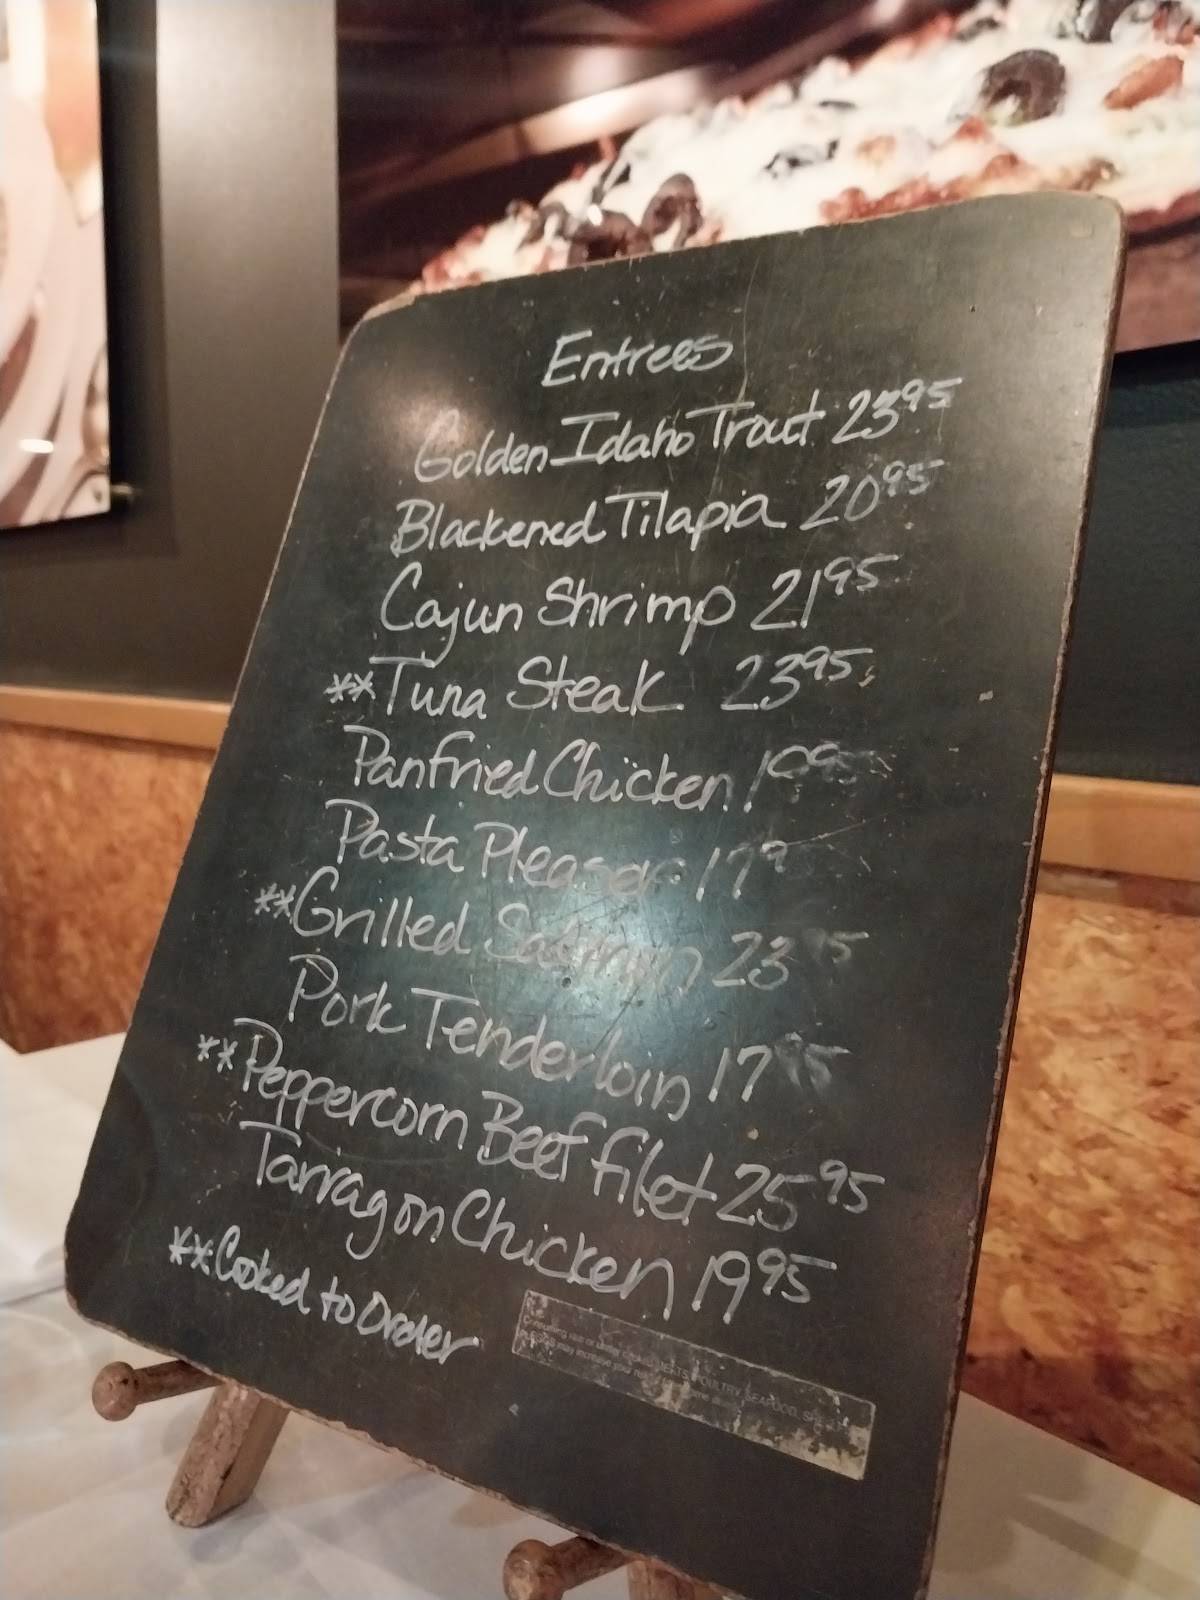 Entrees
Golden Idaho Trout 23.95
Blackened Tilapia 20.95
Cajun Shrimp 21.95
**Tuna Steak 23.95
Panfried Chicken 19.95
Pasta Pleaser 17.9
**Grilled Salmon 23.95
Pork Tenderloin 17.95
**Peppercorn Beef filet 25.95
Tarragon Chicken 19.95
**Cooked to Order
Consuming raw or under cooked MEATS, POULTRY, SEAFOOD,
may increase your